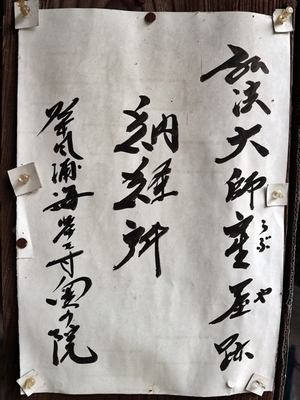 弘法大師産屋跡
うぶや
納経所
屏風浦海岸寺奥院